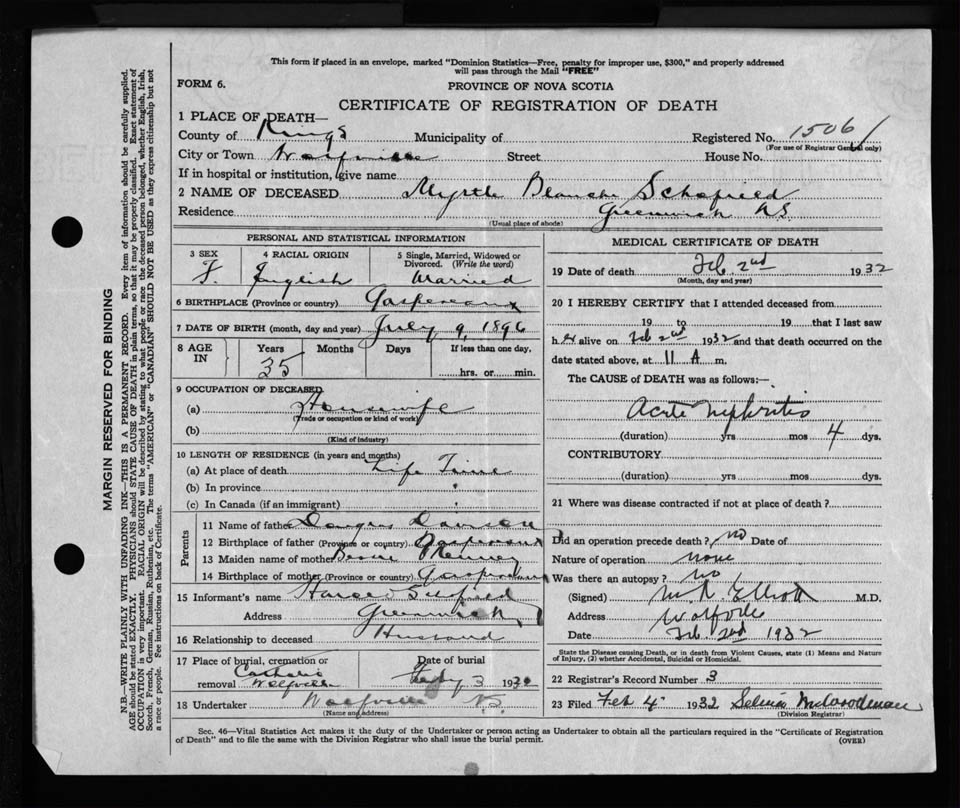 This form if placed in an envelope, marked "Dominion Statistics—Free, penalty for improper use, $300," and properly addressed
will pass through the Mail "FREE"
FORM 6.
PROVINCE OF NOVA SCOTIA
CERTIFICATE OF REGISTRATION OF DEATH
1 PLACE OF DEATH—
County of Kings Municipality of Registered No. 1506
(For use of Registrar General only)
City or Town Wolfville Street House No.
If in hospital or institution, give name
2 NAME OF DECEASED Myrtle Blanche Schofield
Residence Greenwich N.S.
(Usual place of abode)
PERSONAL AND STATISTICAL INFORMATION
3 SEX 4 RACIAL ORIGIN 5 Single, Married, Widowed or
Divorced. (Write the word)
F. English Married
6 BIRTHPLACE (Province or country) Gaspereaux
7 DATE OF BIRTH (month, day and year) July 9, 1896
8 AGE IN Years Months Days If less than one day,
35 hrs. or min.
9 OCCUPATION OF DECEASED
(a) Housewife
(Trade or occupation or kind of work)
(b)
(Kind of industry)
10 LENGTH OF RESIDENCE (in years and months)
(a) At place of death Life Time
(b) In province "
(c) In Canada (if an immigrant)
Parents
11 Name of father Davison
12 Birthplace of father (Province or country) Gaspereaux
13 Maiden name of mother
14 Birthplace of mother (Province or country) Gaspereaux
15 Informant's name Schofield
Address Greenwich
16 Relationship to deceased Husband
17 Place of burial, cremation or Date of burial
removal Wolfville Feby 3 1932
18 Undertaker Wolfville N.S.
(Name and address)
MEDICAL CERTIFICATE OF DEATH
19 Date of death Feb 2nd 1932
(Month, day and year)
20 I HEREBY CERTIFY that I attended deceased from
19 to 19 that I last saw
her alive on Feb 2nd 1932 and that death occurred on the
date stated above, at 11 A m.
The CAUSE of DEATH was as follows:—
Acute Nephritis
(duration) yrs mos 4 dys.
CONTRIBUTORY
(duration) yrs mos dys.
21 Where was disease contracted if not at place of death?
Did an operation precede death? no Date of
Nature of operation none
Was there an autopsy? no
(Signed) Elliott M.D.
Address Wolfville
Date Feb 2nd 1932
State the Disease causing Death, or in death from Violent Causes, state (1) Means and Nature
of Injury, (2) whether Accidental, Suicidal or Homicidal.
22 Registrar's Record Number 3
23 Filed Feb 4 1932
(Division Registrar)
Sec. 46—Vital Statistics Act makes it the duty of the Undertaker or person acting as Undertaker to obtain all the particulars required in the "Certificate of Registration
of Death" and to file the same with the Division Registrar who shall issue the burial permit.
(OVER)
MARGIN RESERVED FOR BINDING
N.B.—WRITE PLAINLY WITH UNFADING INK—THIS IS A PERMANENT RECORD. Every item of information should be carefully supplied.
AGE should be stated EXACTLY. PHYSICIANS should STATE CAUSE OF DEATH in plain terms, so that it may be properly classified. Exact statement of
OCCUPATION is very important. RACIAL ORIGIN will be described by stating to what people or race the deceased person belonged, whether English, Irish,
Scotch, French, German, Russian, Ruthenian, etc. The terms "AMERICAN" or "CANADIAN" SHOULD NOT BE USED as they express citizenship but not
a race or people. See instructions on back of Certificate.